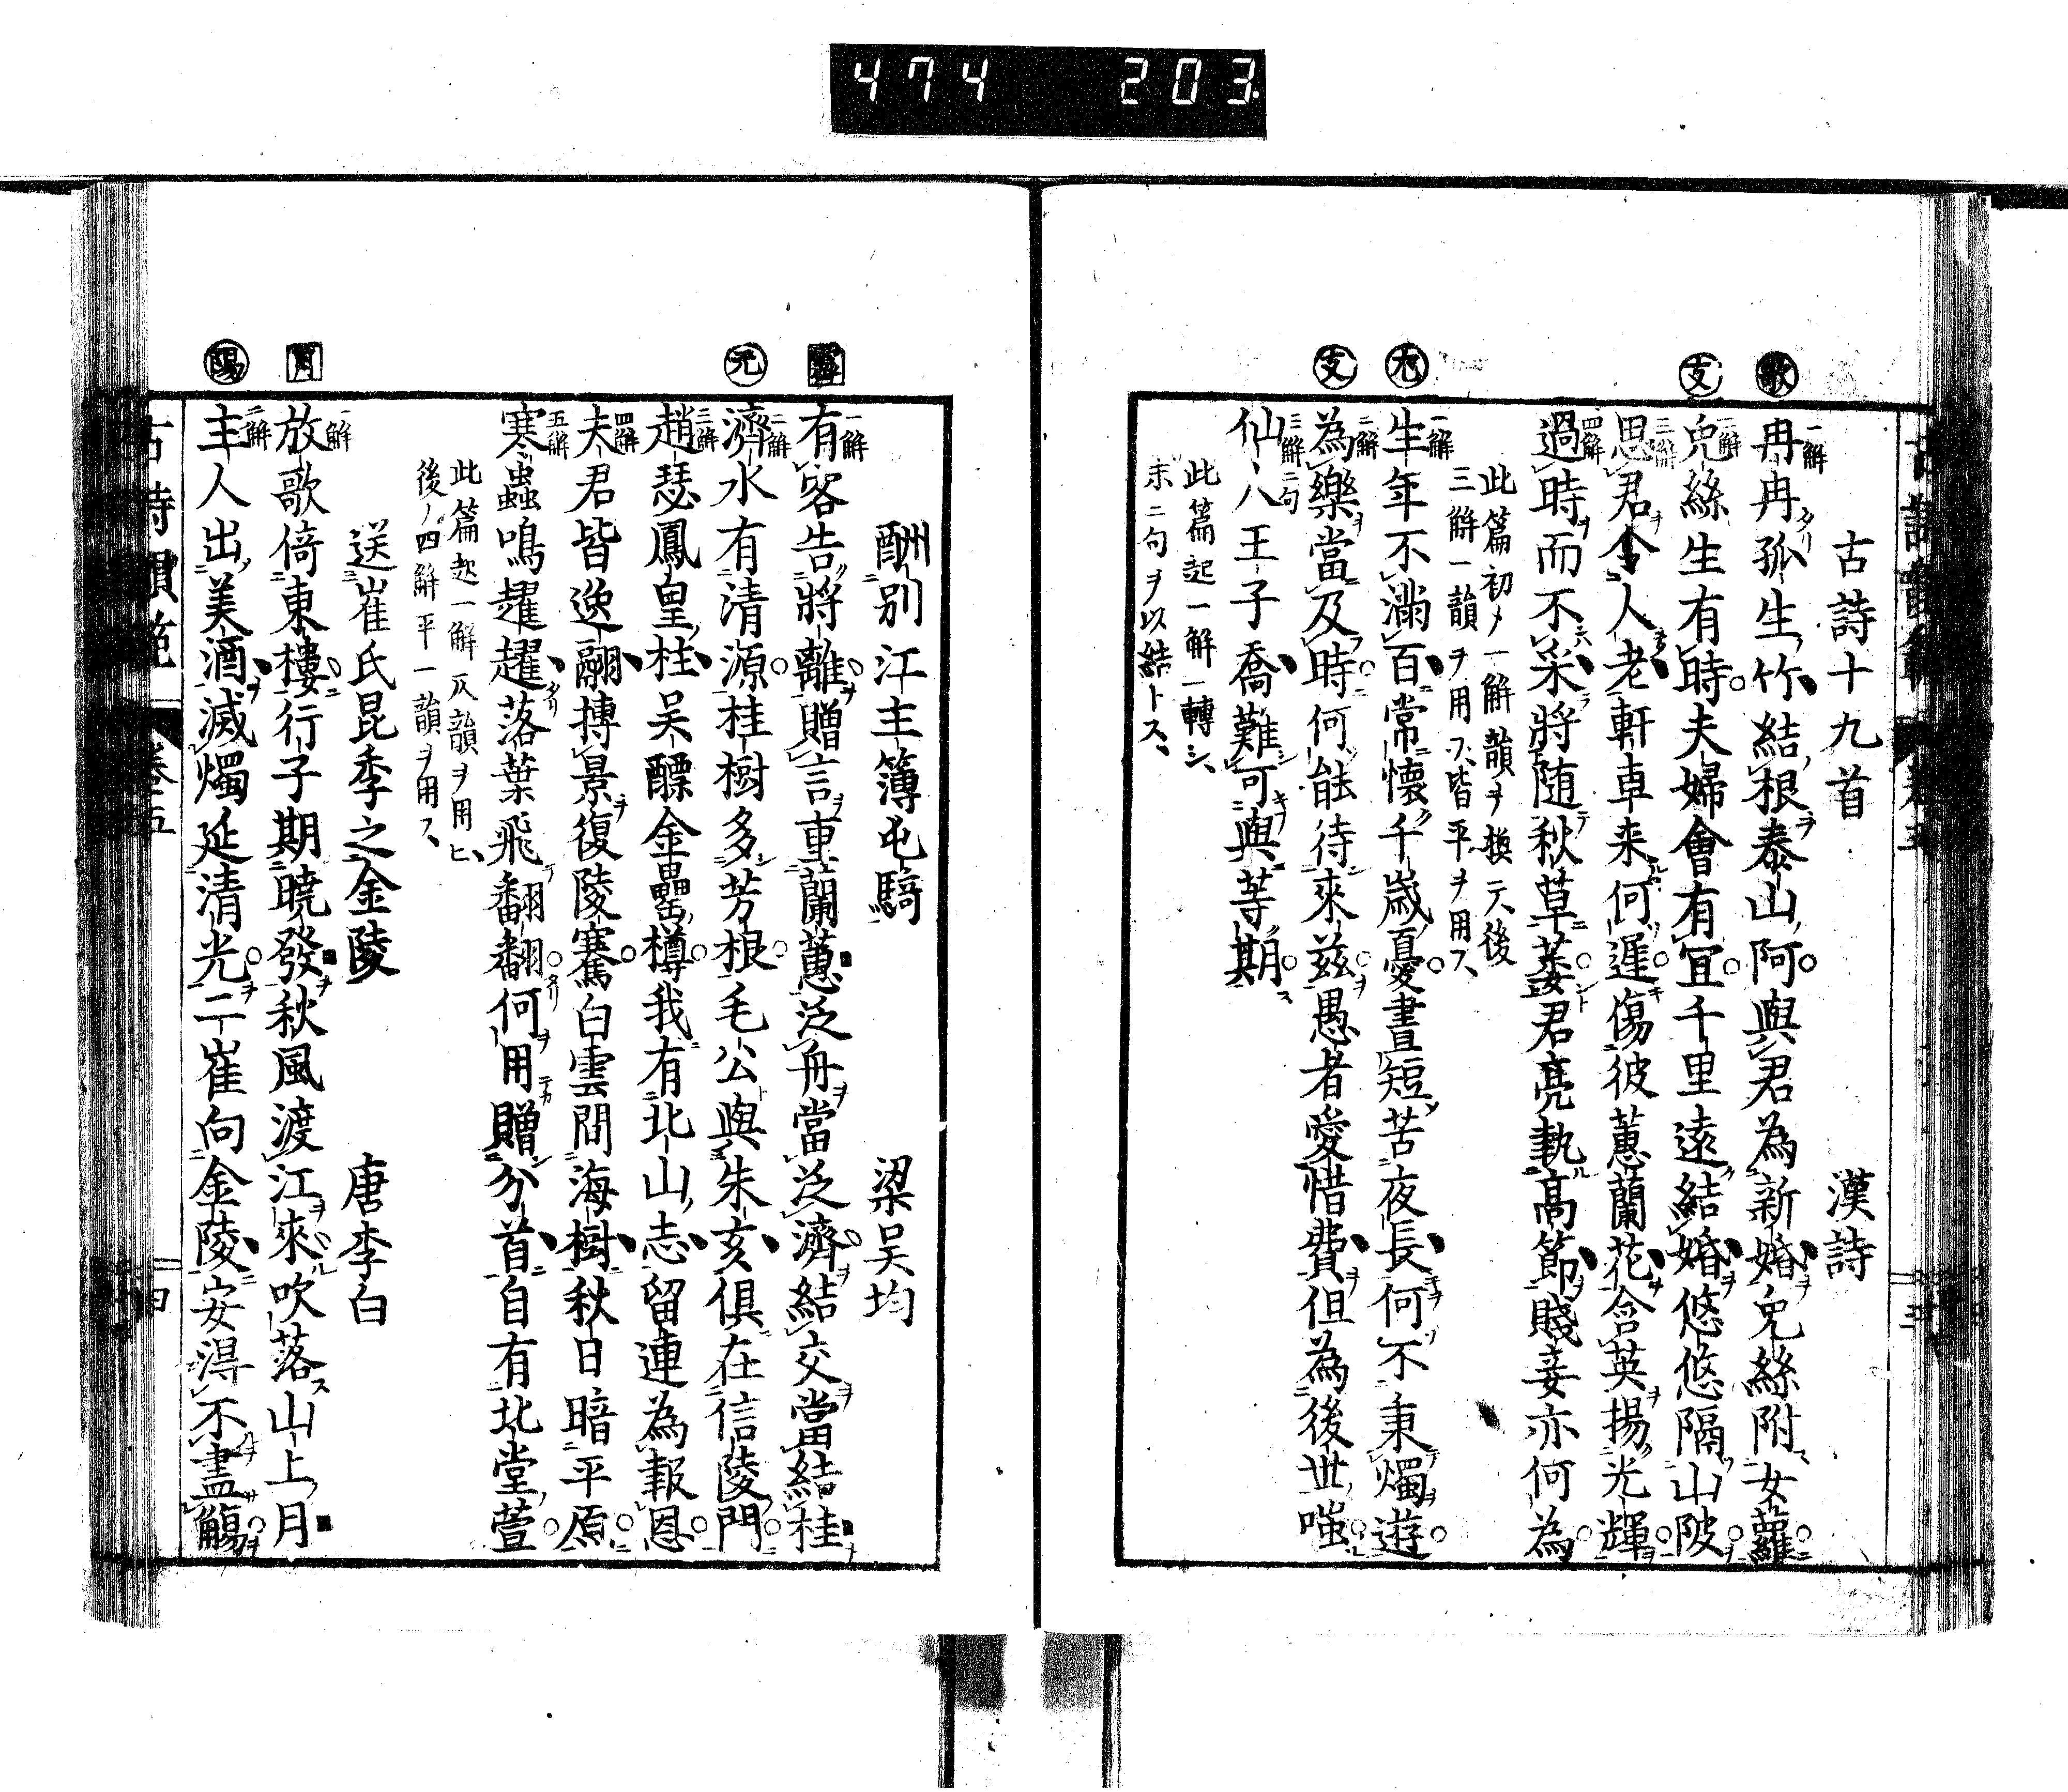 474 203
古詩十九首 漢詩
歌
一解
冉冉孤生竹結根泰山阿與君為新婚兔絲附女蘿
支
二解
兔絲生有時夫婦會有宜千里遠結婚悠悠隔山陂
三解
思君令人老軒車来何遲傷彼蕙蘭花含英揚光輝
四解
過時而不采將随秋草萎君亮執髙節賤妾亦何為
此篇初メ一解韻ヲ換テ後
三解一韻ヲ用フ皆平ヲ用フ
尤
一解
生年不滿百常懷千歳憂晝短苦夜長何不秉燭遊
支
二解
為樂當及時何能待來兹愚者愛惜費但為後世嗤
三解二句
仙人王子喬難可與等期
此篇起一解一轉シ
末二句ヲ以結トス
酬別江主簿屯騎 梁吴均
霽
一解
有客告將離贈言重蘭蕙泛舟當泛濟結交當結桂
元
二解
濟水有清源桂樹多芳根毛公與朱亥俱在信陵門
三解
趙瑟鳳皇柱吴醥金罍樽我有北山志留連為報恩
四解
夫君皆逸翮摶景復陵騫白雲間海樹秋日暗平原
五解
寒蟲鳴趯趯落葉飛翻翻何用贈分首自有北堂萱
此篇起一解仄韻ヲ用ヒ
後ノ四解平一韻ヲ用フ
送崔氏昆季之金陵 唐李白
月
一解
放歌倚東樓行子期曉發秋風渡江來吹落山上月
陽
二解
主人出美酒滅燭延清光二崔向金陵安得不盡觴
古詩韻範 卷五 四